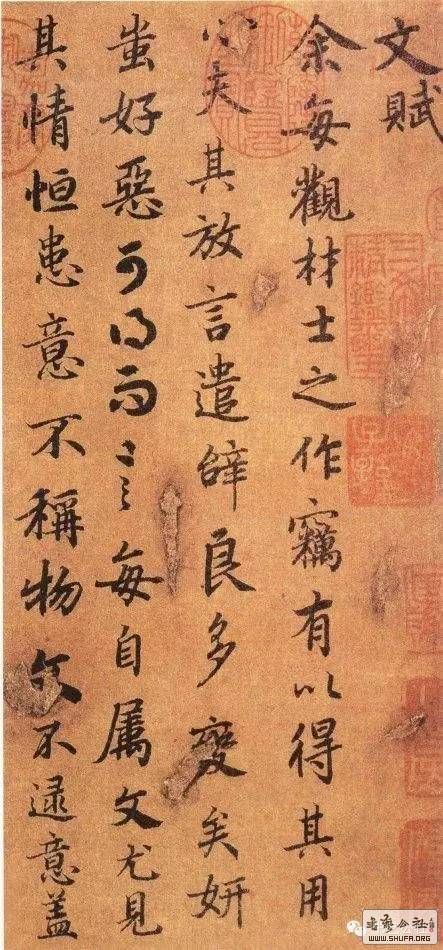 文賦
余每觀材士之作竊有以得其用
心夫其放言遣辭良多變矣妍
蚩好惡可得而言每自属文尤見
其情恒患意不稱物文不逮意盖
三希堂精鑑璽
宜子孫
WWW.SHUFA.ORG